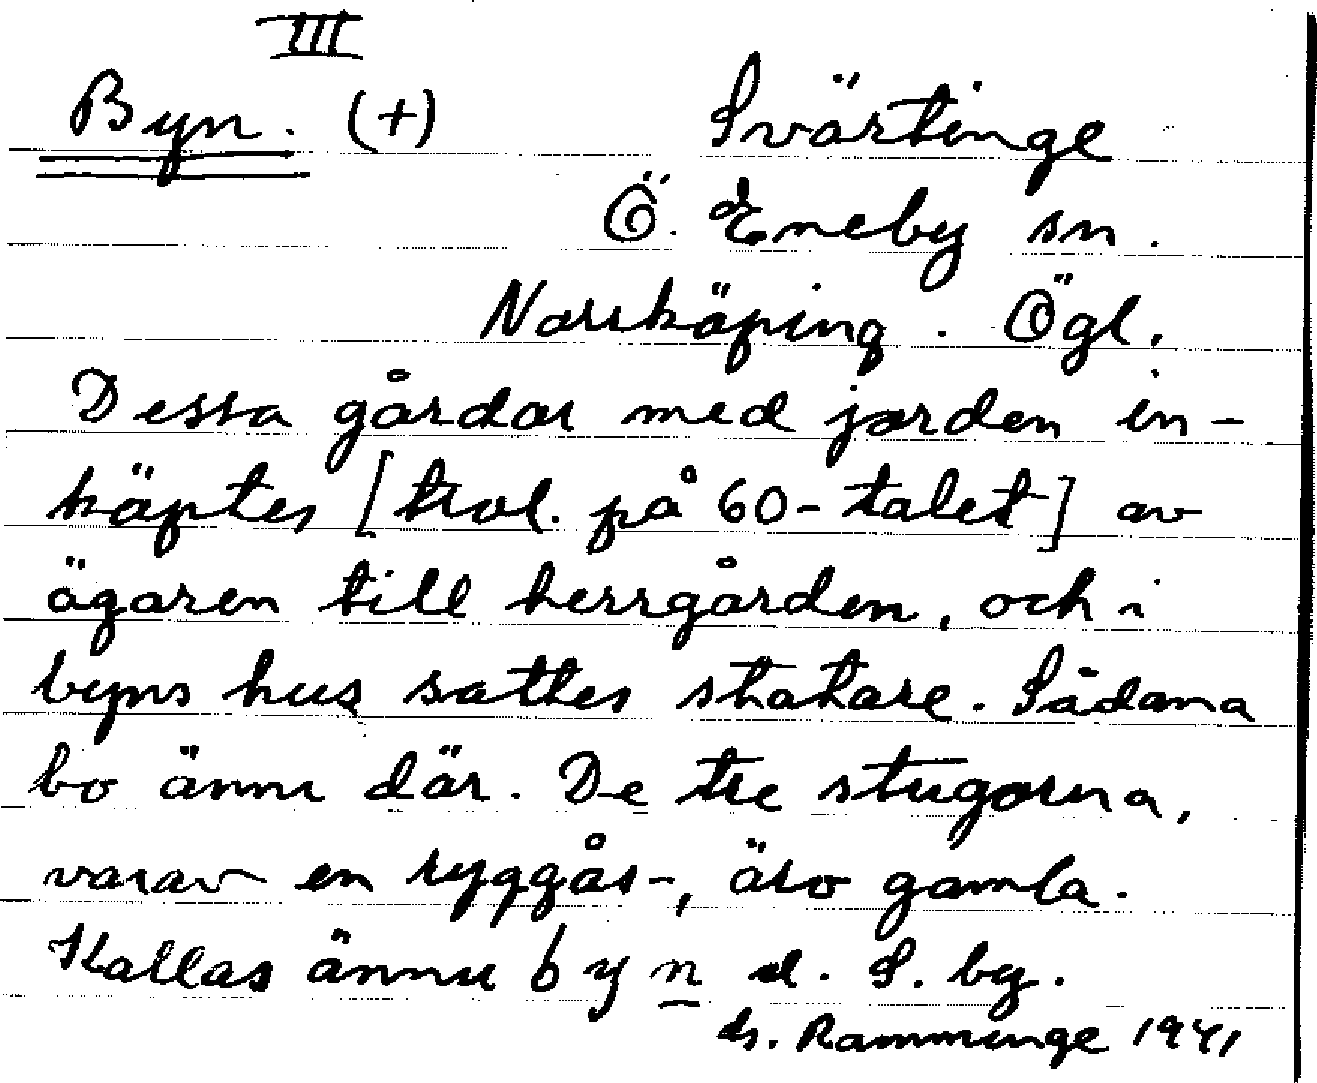 III
Byn. (+) Svärtinge
Ö. Eneby sn.
Norrköping. Ögl.
Dessa gårdar med jorden in-
köptes [trol. på 60-talet] av
ägaren till herrgården, och i
byns hus sattes statare. Sådana
bo ännu där. De tre stugorna,
varav en ryggås-, äro gamla.
Kallas ännu byn el. S. by.
Ramminge 1941